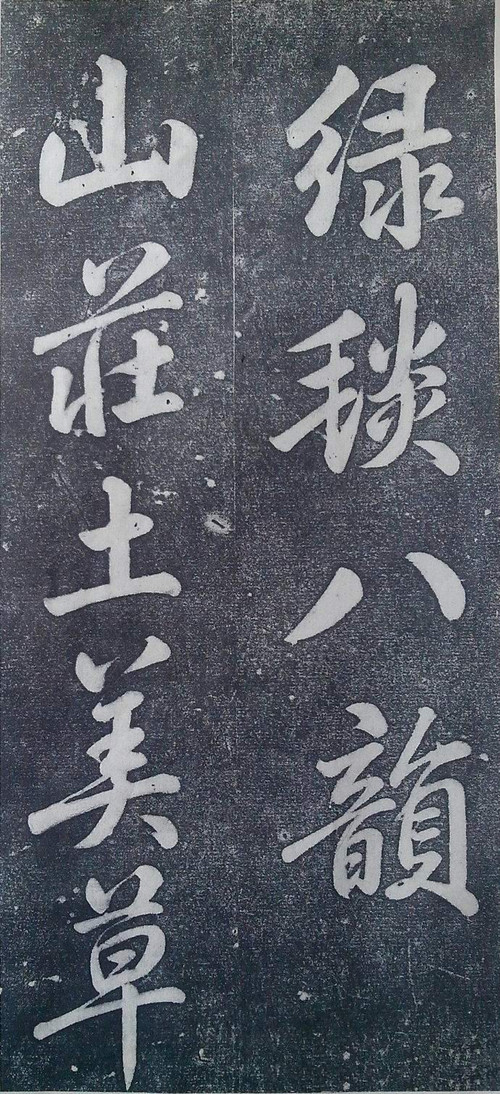 緑毯八韻
山莊土美草